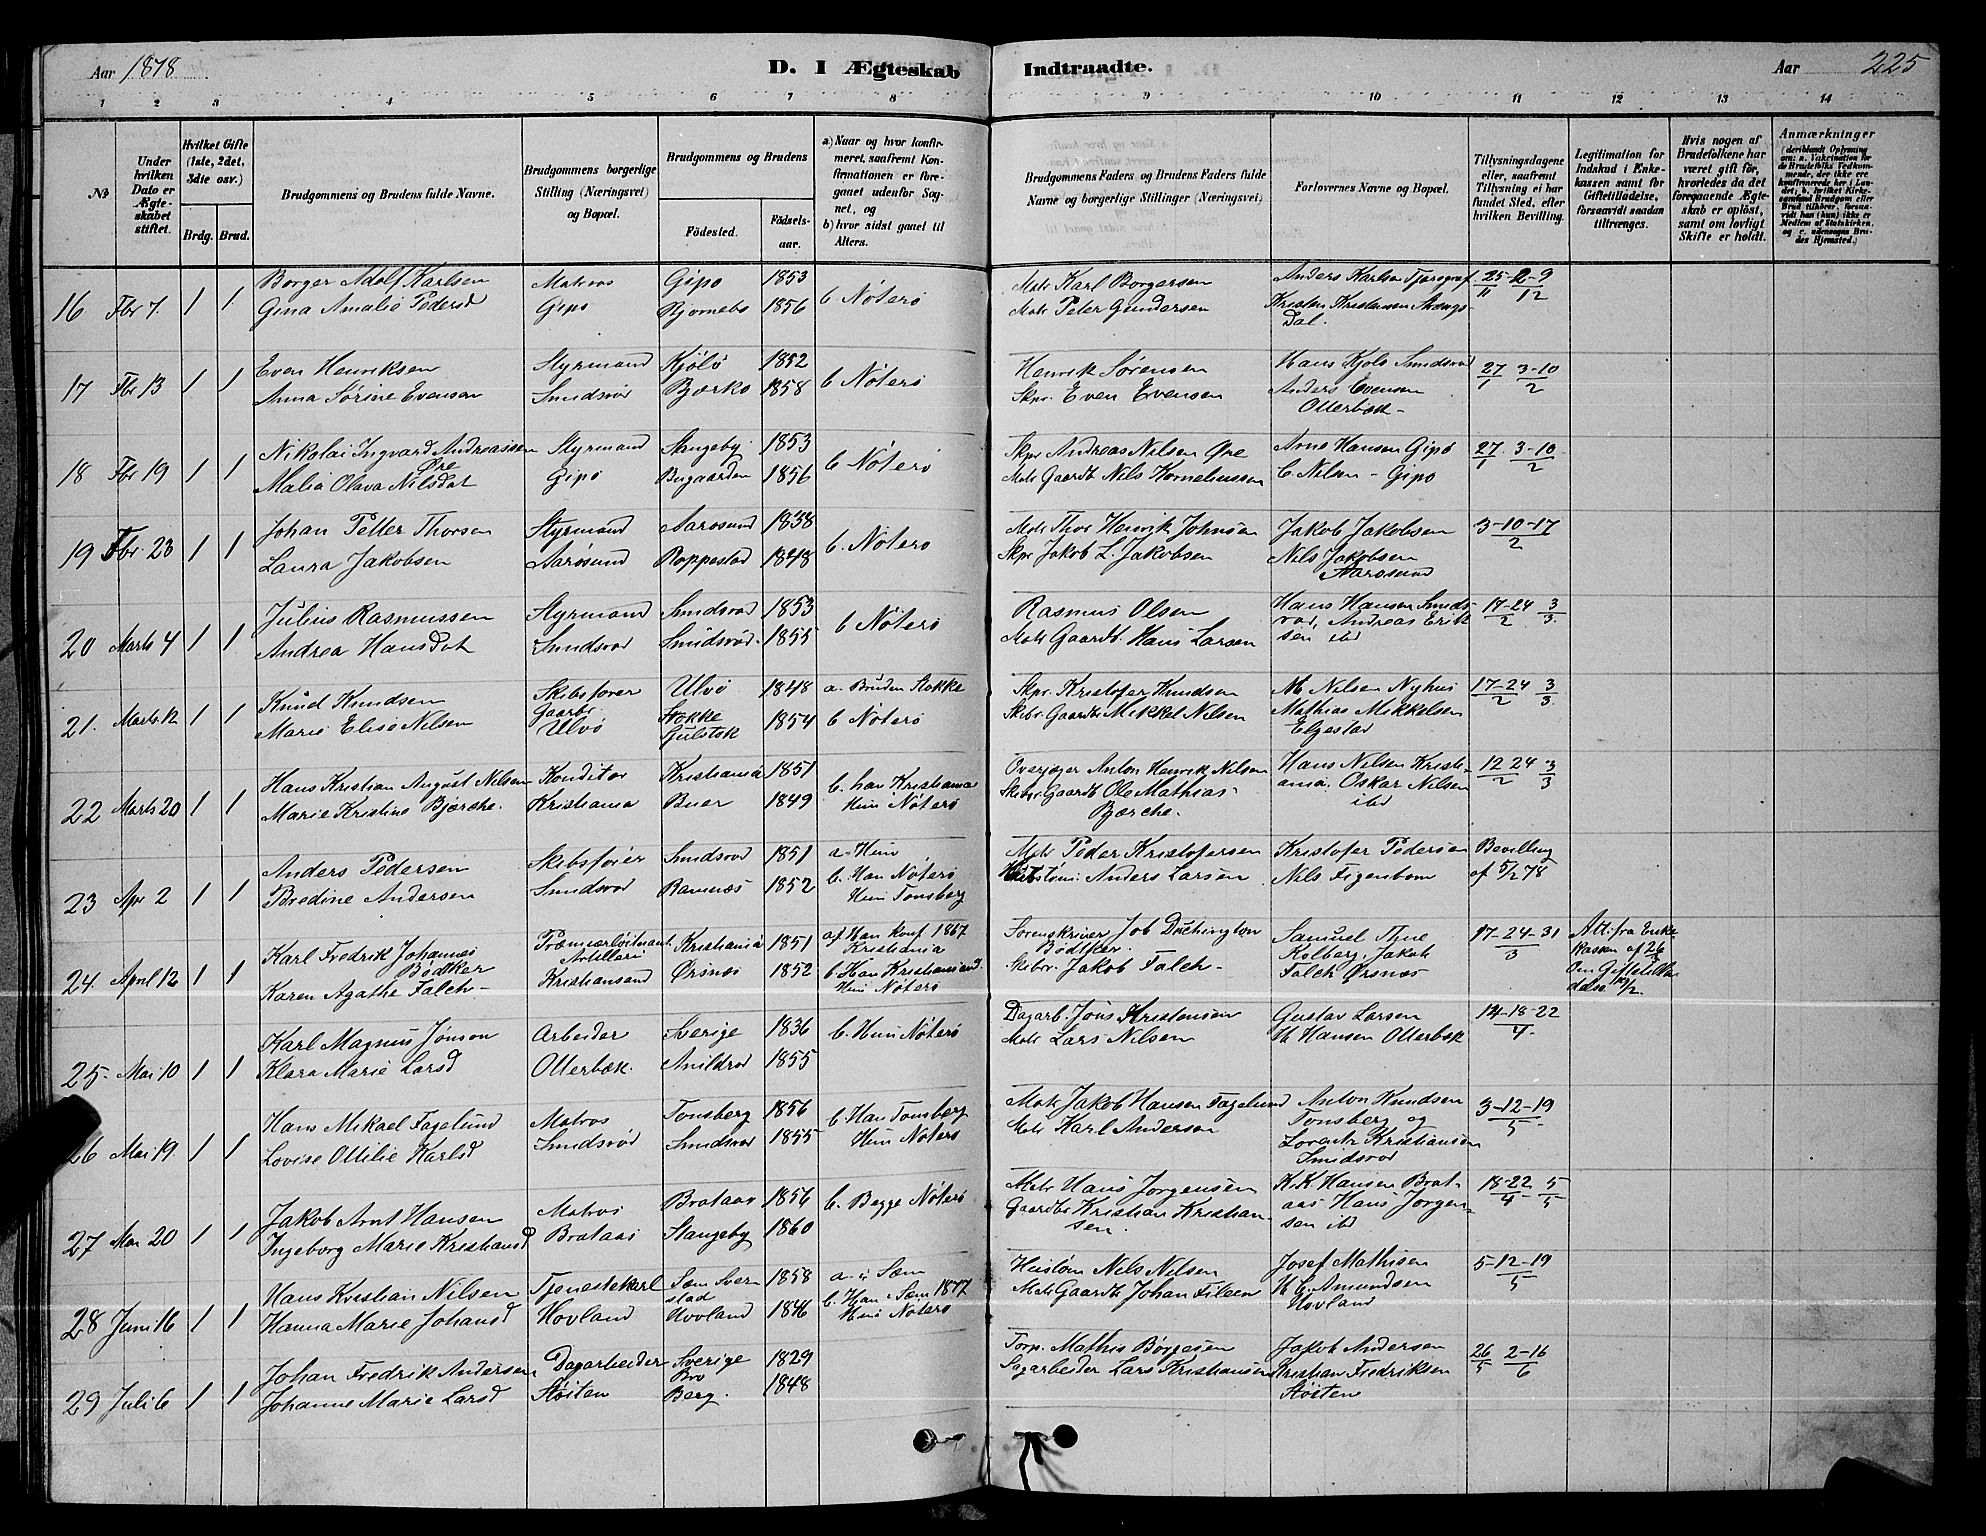 Aar 1878
D. I Ægteskab Indtraadte.
Aar 225
1 2 3 4 5 6 7 8 9 10 11 12 13 14
№
Under hvilken Dato er Ægteskabet stiftet.
Hvilket Gifte (1ste, 2det, 3die osv.)
Brdg. Brud.
Brudgommens og Brudens fulde Navne.
Brudgommens borgerlige Stilling (Næringsvei) og Bopæl.
Brudgommens og Brudens
Fødested. Fødselsaar.
a) Naar og hvor konfirmeret, saafremt Konfirmationen er foregaaet udenfor Sognet, og
b) hvor sidst gaaet til Alters.
Brudgommens Faders og Brudens Faders fulde Navne og borgerlige Stillinger (Næringsvei)
Forlovernes Navne og Bopæl.
Tillysningsdagene eller, saafremt Tillysning ei har fundet Sted, efter hvilken Bevilling.
Legitimation for Indskud i Enkekassen samt for Giftetilladelse, forsaavidt saadan tiltrænges.
Hvis nogen af Brudefolkene har været gift før, hvorledes da det foregaaende Ægteskab er opløst, samt om lovligt Skifte er holdt.
Anmærkninger
16 Fbr 7. 1 1 Borger Adolf Karlsen Matros Gipø 1853 b Nøterø Matr Karl Borgersen Anders Karlsen 25/11 2-9/12
Gina Amalie Pedersd Gipø Bjørnebo 1856 Matr Peter Gundersen Kristen Kristensen
Dal.
17 Fbr 13 1 1 Even Henriksen Styrmand Kjølø 1852 b Nøterø Henrik Sørensen Hans Kjølø Smidsrød 27/1 3-10/2
Anna Sørine Evensen Smidsrød Bjerkø 1858 Skpr. Even Evensen Anders Evensen
Otterbæk
18 Fbr 19 1 1 Nikolai Ingvard Andreassen Øre Styrmand Stangeby 1853 b Nøterø Skpr Andreas Nilsen Øre Arne Hansen Gipø 27/1 3-10/2
Malia Olava Nilsdat Gipø Bugaarden 1856 Matr Gaardb Nils Korneliussen C Nilsen - Gipø
19 Fbr 23 1 1 Johan Petter Thorsen Styrmand Aarøsund 1838 b. Nøterø Matr Thor Henrik Johnsen Jakob Jakobsen 3-10-17/2
Laura Jakobsen Aarøsund Roppestad 1848 Skpr Jakob L. Jakobsen Nils Jakobsen
Aarøsund
20 Marts 4 1 1 Julius Rasmussen Styrmand Smidsrød 1853 b Nøterø Rasmus Olsen Hans Hansen Smids- 17-24/2 3/3
Andrea Hansdat Smidsrød Smidsrød 1855 Matr Gaardb. Hans Larsen rød, Andreas Erik
sen ibd
21. Marts 12 1 1 Knud Knudsen Skibsfører Ulvø 1848 a. Bruden Stokke Skpr. Kristofer Knudsen M Nilsen Nyhus 17-24/2 3/3
Marie Elise Nilsen Gaarbr. Ulvø Stokke Gulstok 1854 b Nøterø Skibr. Gaardb Mikkel Nilsen Mathias Mikkelsen
Elgestad
22 Marts 20 1 1 Hans Kristian August Nilsen Konditor Kristiania 1851 b. han Kristiania Overjæger Anton Henrik Nilsen Hans Nilsen Kristi- 12 24/2 3/3
Marie Kristine Bjerche. Kristiania Buer 1849 Hun Nøterø Skibr. Gaardb Ole Mathias ania. Oskar Nilsen
Bjerche. ibd
23 Apr 2 1 1 Anders Pedersen Skibsfører Smidsrød 1851 a. Hun Matr Peder Kristofersen Kristofer Pedersen Bevilling
Bredine Andersen Smidsrød Ramnes 1852 b. Han Nøterø Anders Larsen Nils Figenbom af 5/2 78
Hun Tønsberg
24. April 12 1 1 Karl Fredrik Johannes Bødtker Premierløitnant Artilleri Kristiania 1851 a) Han konf 1867 Kristiania Sorenskriver Job Bødtker. Samuel Thue 17-24-31/3 Att. fra Enke-
Karen Agathe Falch Kristiansand Ørsnes 1852 b Han Kristiansand. Skibr. Jakob Falch. Kolberg. Jakob kassen af
Hun Nøterø Falch Ørsnes Om Giftetilla
delse
25. Mai 10 1 1 Karl Magnus Jønson Arbeider Sverige 1836 b. Hun Nøterø Dagarb. Jøns Kristensen Gustav Larsen 14-18-22/4
Klara Marie Larsd Otterbæk. Anildrød 1855 Matr. Lars Nilsen Th Hansen Otterbæk
26 Mai 19 1 1 Hans Mikael Fagelund Matros Tønsberg 1856 b. Han Tønsberg Matr Jakob Hansen Fagelund Anton Knudsen 3-12-19/5
Lovise Ottilie Karlsd Smidsrød Smidsrød 1855 Hun Nøterø Matr Karl Andersen Tønsberg og
Lorentz Kristiansen
Smidsrød
27 Mai 20 1 1 Jakob Arnt Hansen Matros Brataas 1856 b. Begge Nøterø Matr Hans Jørgensen K.K. Hansen Brat- 18-22/4 5/5
Ingeborg Marie Kristiansd Brataas Stangeby 1860 Gaardb Kristian Kristian- aas Hans Jørgen-
sen. sen ibd
28 Juni 16 1 1 Hans Kristian Nilsen Tjenestekarl Sem Sverstad 1858 a. i Sem Husløm Nils Nilsen Josef Mathisen 5-12-19/5
Hanna Marie Johansd Hovland Hovland 1846 b. Han Sem 1877 Matr Gaardb Johan Fileen H C Amundsen
Hun Nøterø Hovland
29 Juli 6 1 1 Johan Fredrik Andersen Dagarbeider Sverige Bro 1829 Torp. Mathis Børgesen Jakob Andersen 26/5 2-16/6
Johanne Marie Larsd Støiten Berg. 1848 Dagarbeider Lars Kristiansen Kristian Fredriksen
Støiten